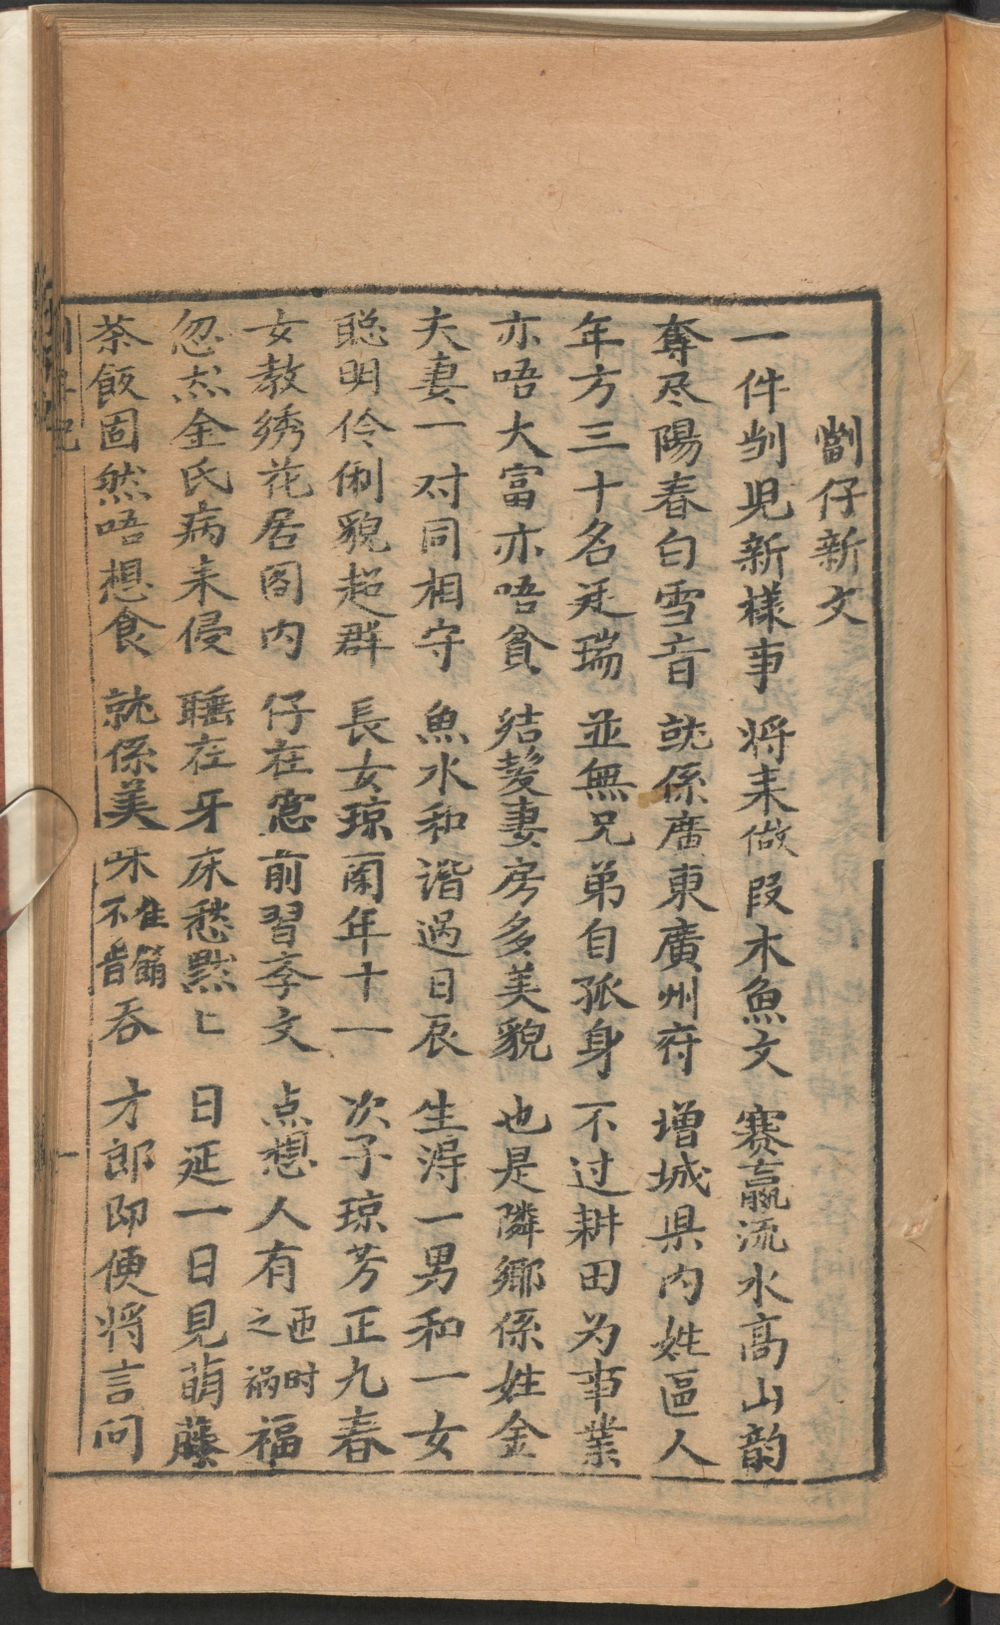 劏仔新文
一件刣児新樣事 将耒做段木魚文 赛嬴流水高山韵
奪尽陽春白雪音 就係廣東廣州府 增城県内姓區人
年方三十名廷瑞 並無兄弟自孤身 不过耕田为事業
亦唔大富亦唔貧 结髮妻房多美貌 也是隣鄉係姓金
夫妻一对同相守 魚水和谐过日辰 生淂一男和一女
聪明伶俐貌超群 長女琼蘭年十一 次子琼芳正九春
女教绣花居阁内 仔在窓前習孝文 点想人有匝时之祸福
忽然金氏病耒侵 睡在牙床愁默匕 日延一日見萌藤
茶飯固然唔想食 就係美味隹餚不肯吞 才郎即便将言问